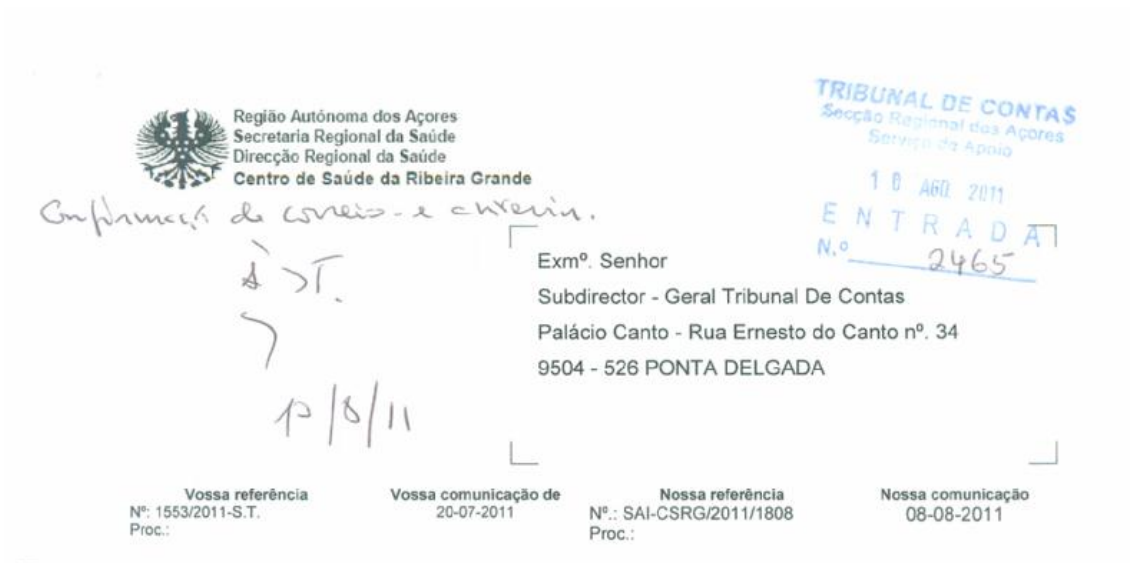 Região Autónoma dos Açores
Secretaria Regional da Saúde
Direcção Regional da Saúde
Centro de Saúde da Ribeira Grande
TRIBUNAL DE CONTAS
Secção Regional dos Açores
Serviço de Apoio
10 AGO. 2011
ENTRADA
N.º 2465
de correio-e
À ST.
10/8/11
Exmº. Senhor
Subdirector - Geral Tribunal De Contas
Palácio Canto - Rua Ernesto do Canto nº. 34
9504 - 526 PONTA DELGADA
Vossa referência
Nº: 1553/2011-S.T.
Proc.:
Vossa comunicação de
20-07-2011
Nossa referência
Nº.: SAI-CSRG/2011/1808
Proc.:
Nossa comunicação
08-08-2011